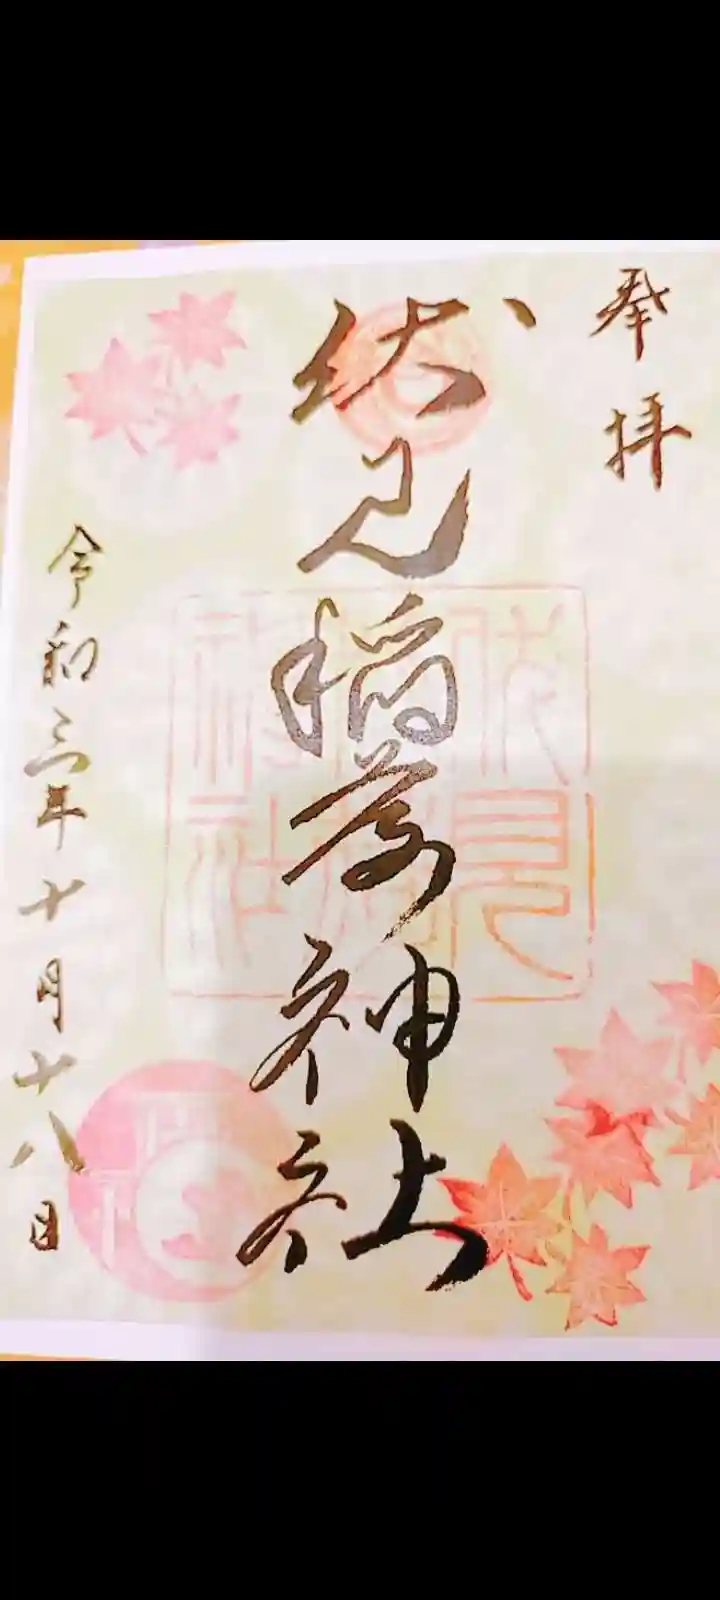 奉拝
伏見稲荷神社
伏見稲荷神社
令和三年十月十八日